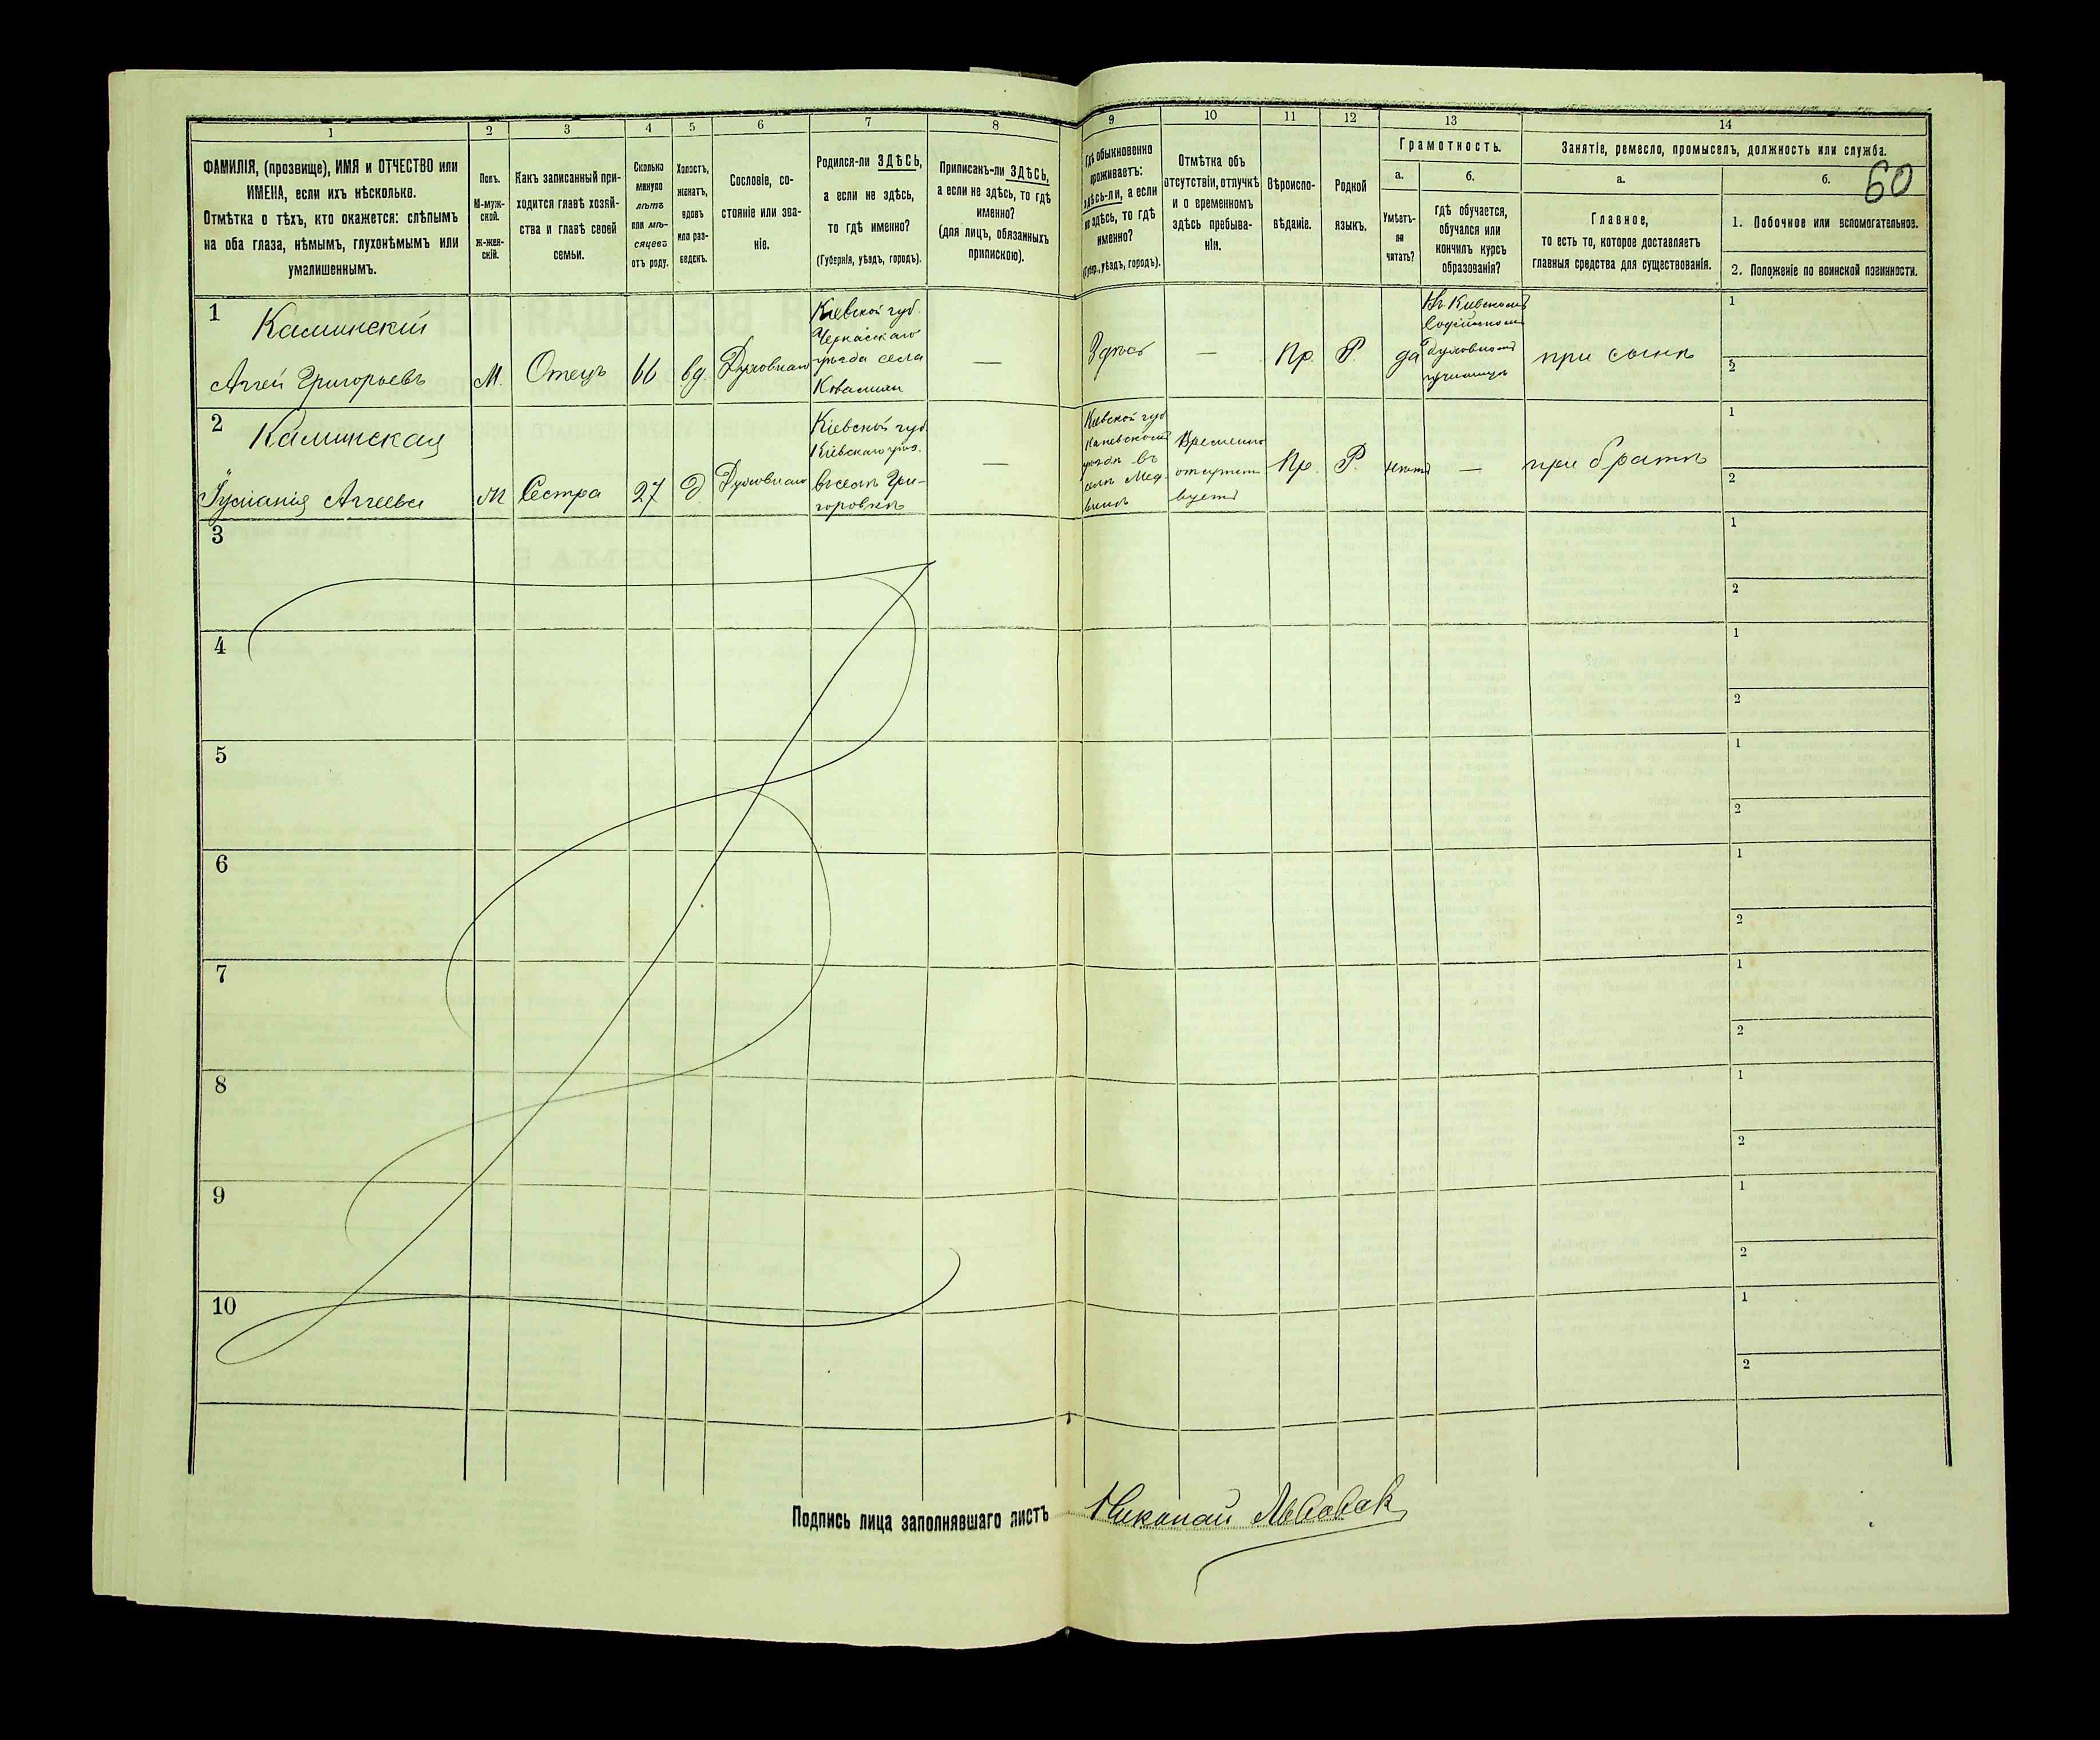 1 2 3 4 5 6 7 8 9 10 11 12 13 14
ФАМИЛІЯ, (прозвище), ИМЯ и ОТЧЕСТВО или
ИМЕНА, если ихъ нѣсколько.
Отмѣтка о тѣхъ, кто окажется: слѣпымъ
на оба глаза, нѣмымъ, глухонѣмымъ или
умалишеннымъ.
Полъ.
М-муж-
ской.
ж-жен-
скій.
Какъ записанный при-
ходится главѣ хозяй-
ства и главѣ своей
семьи.
Сколько
минуло
лѣтъ
или мѣ-
сяцевъ
отъ роду.
Холостъ,
женатъ,
вдовъ
или раз-
веденъ.
Сословіе, со-
стояніе или зва-
ніе.
Родился-ли ЗДѢСЬ,
а если не здѣсь,
то гдѣ именно?
(Губернія, уѣздъ, городъ).
Приписанъ-ли ЗДѢСЬ,
а если не здѣсь, то гдѣ
именно?
(для лицъ, обязанныхъ
припискою).
Гдѣ обыкновенно
проживаетъ:
здѣсь-ли, а если
не здѣсь, то гдѣ
именно?
(Губер., уѣздъ, городъ).
Отмѣтка объ
отсутствіи, отлучкѣ
и о временномъ
здѣсь пребыва-
ніи.
Вѣроиспо-
вѣданіе.
Родной
языкъ.
Грамотность.
а.
Умѣетъ-
ли
читать?
б.
гдѣ обучается,
обучался или
кончилъ курсъ
образованія?
Занятіе, ремесло, промыселъ, должность или служба.
60
а.
Главное,
то есть то, которое доставляетъ
главныя средства для существованія.
б.
1. Побочное или вспомогательное.
2. Положеніе по воинской повинности.
1
Калинскій
Аггей Григорьевъ
М.
Отецъ
66
вд.
Духовнаго
Кіевской губ.
Черкасскаго
уѣзда села
—
Здѣсь
—
Пр.
Р.
да
Въ Кіевскомъ
Софійскомъ
духовномъ
училищѣ
при сынѣ
1
2
2
Калинская
Аггеева
Сестра
27
Д.
Духовнаго
Кіевской губ.
Кіевскаго уѣз.
въ селѣ Гри-
горовкѣ
—
Кіевской губ
Каневскомъ
уѣздѣ въ
селѣ Мед-
винѣ
Временно
отсутст
вуетъ
Пр.
Р.
нѣтъ
—
при братѣ
1
2
3
1
2
4
1
2
5
1
2
6
1
2
7
1
2
8
1
2
9
1
2
10
1
2
Подпись лица заполнявшаго листъ Николай